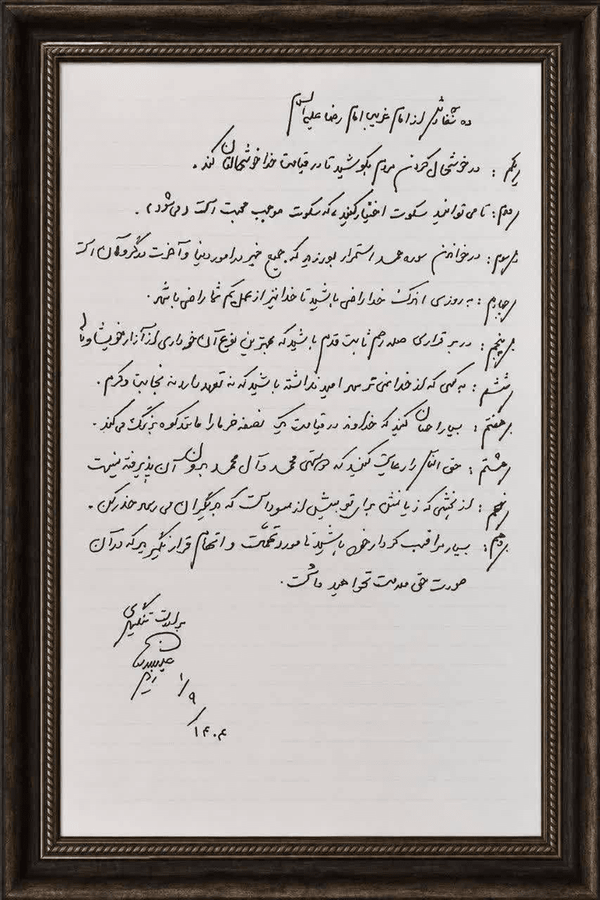 ده سفارش از امام غریب امام رضا علیه السلام
یکم: در خوشحال کردن مردم بکوشید تا در قیامت خدا خوشحالتان کند.
دوم: تا می توانید سکوت اختیار کنید، که سکوت موجب محبت است (می شود).
سوم: در خواندن سوره حمد استمرار بورزید که جمیع خیر در امور دنیا و آخرت در گرو آن است
چهارم: به روزی اندک خدا راضی باشید تا خدا نیز از عمل کم شما راضی باشد.
پنجم: در برقراری صله رحم ثابت قدم باشید که بهترین نوع آن خودداری از آزار خویشاوند
ششم: به کسی که از خدا نمی ترسد امید نداشته باشید که نه تعهد دارد نه نجابت و کرم.
هفتم: بسیار احسان کنید که خداوند در قیامت یک نصفه خرما را مانند کوه بزرگ می کند.
هشتم: حق الناس را رعایت کنید که دوستی محمد و آل محمد بدون آن پذیرفته نیست
نهم: از بخششی که زیانش برای تو بیش از سودی است که به دیگران می رسد حذر کن.
دهم: بسیار مراقب کردار خود باشید تا مورد تهمت و اتهام قرار نگیرید که در آن
صورت حق ملامت نخواهید داشت.
برات تنگسیری
۱/۹
/۱۴۰۴